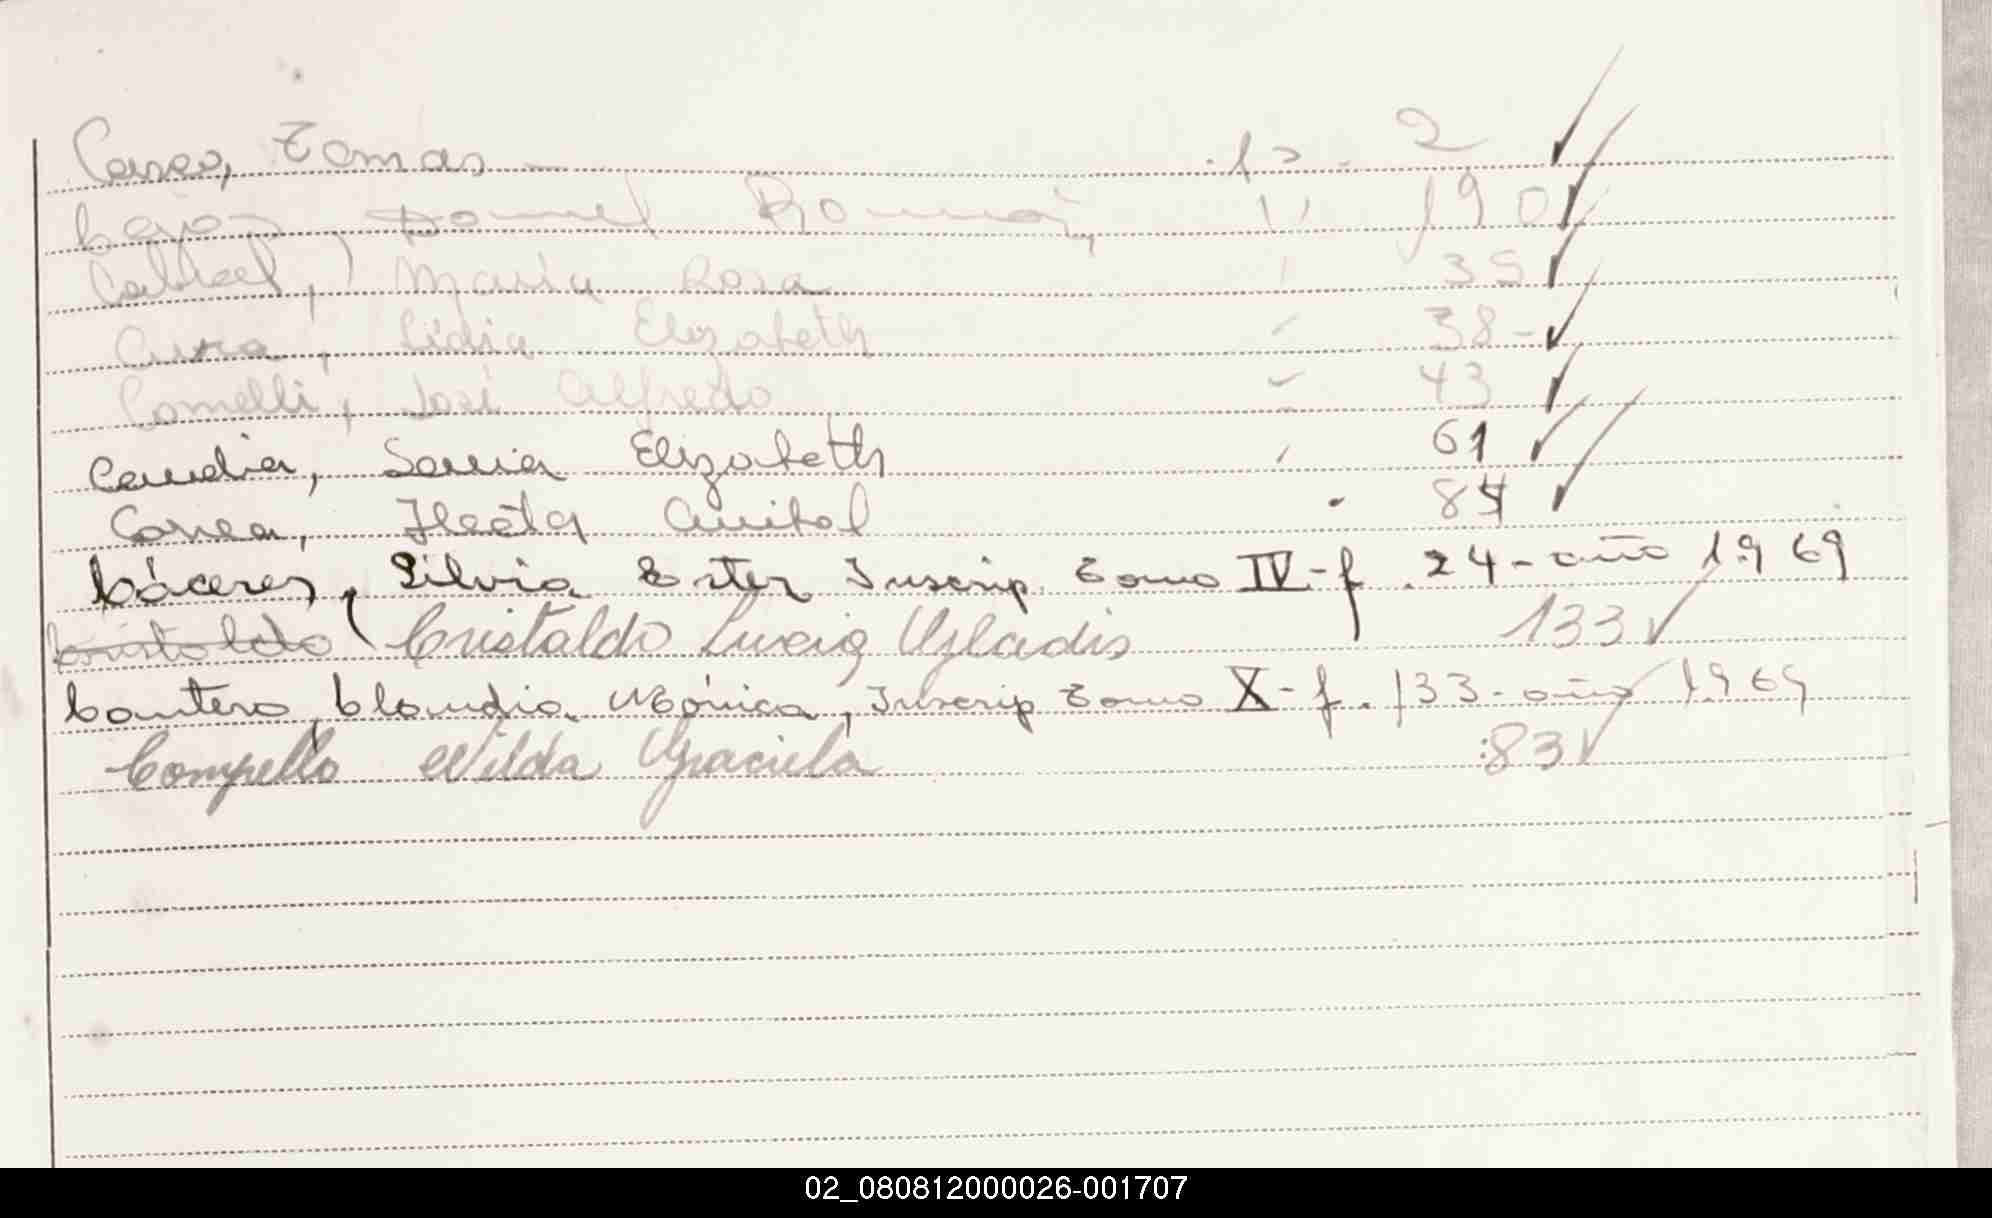 Tomas - fo. 2
Daniel Roman, " 190
Cabral, Maria Rosa 35
Cura, Lidia Elizabeth 38-
Comelli, José Alfredo 43
Candia, Sonia Elizabeth 61
Correa, Hector Anibal 84
Cáceres, Silvia Ester Inscrip. Tomo IV-f. 24-año 1969
Cristaldo Cristaldo Lucia Gladis 133
Cantero, Claudia Mónica, Inscrip Tomo X-f. 133-año 1969
Compello Nilda Graciela 83
02_080812000026-001707